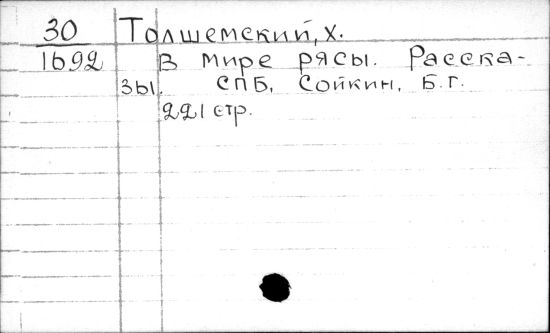 30 Толшемский, Х.
1692 В мире рясы. Расска-
зы. СПБ, Сойкин, б.г.
221 стр.